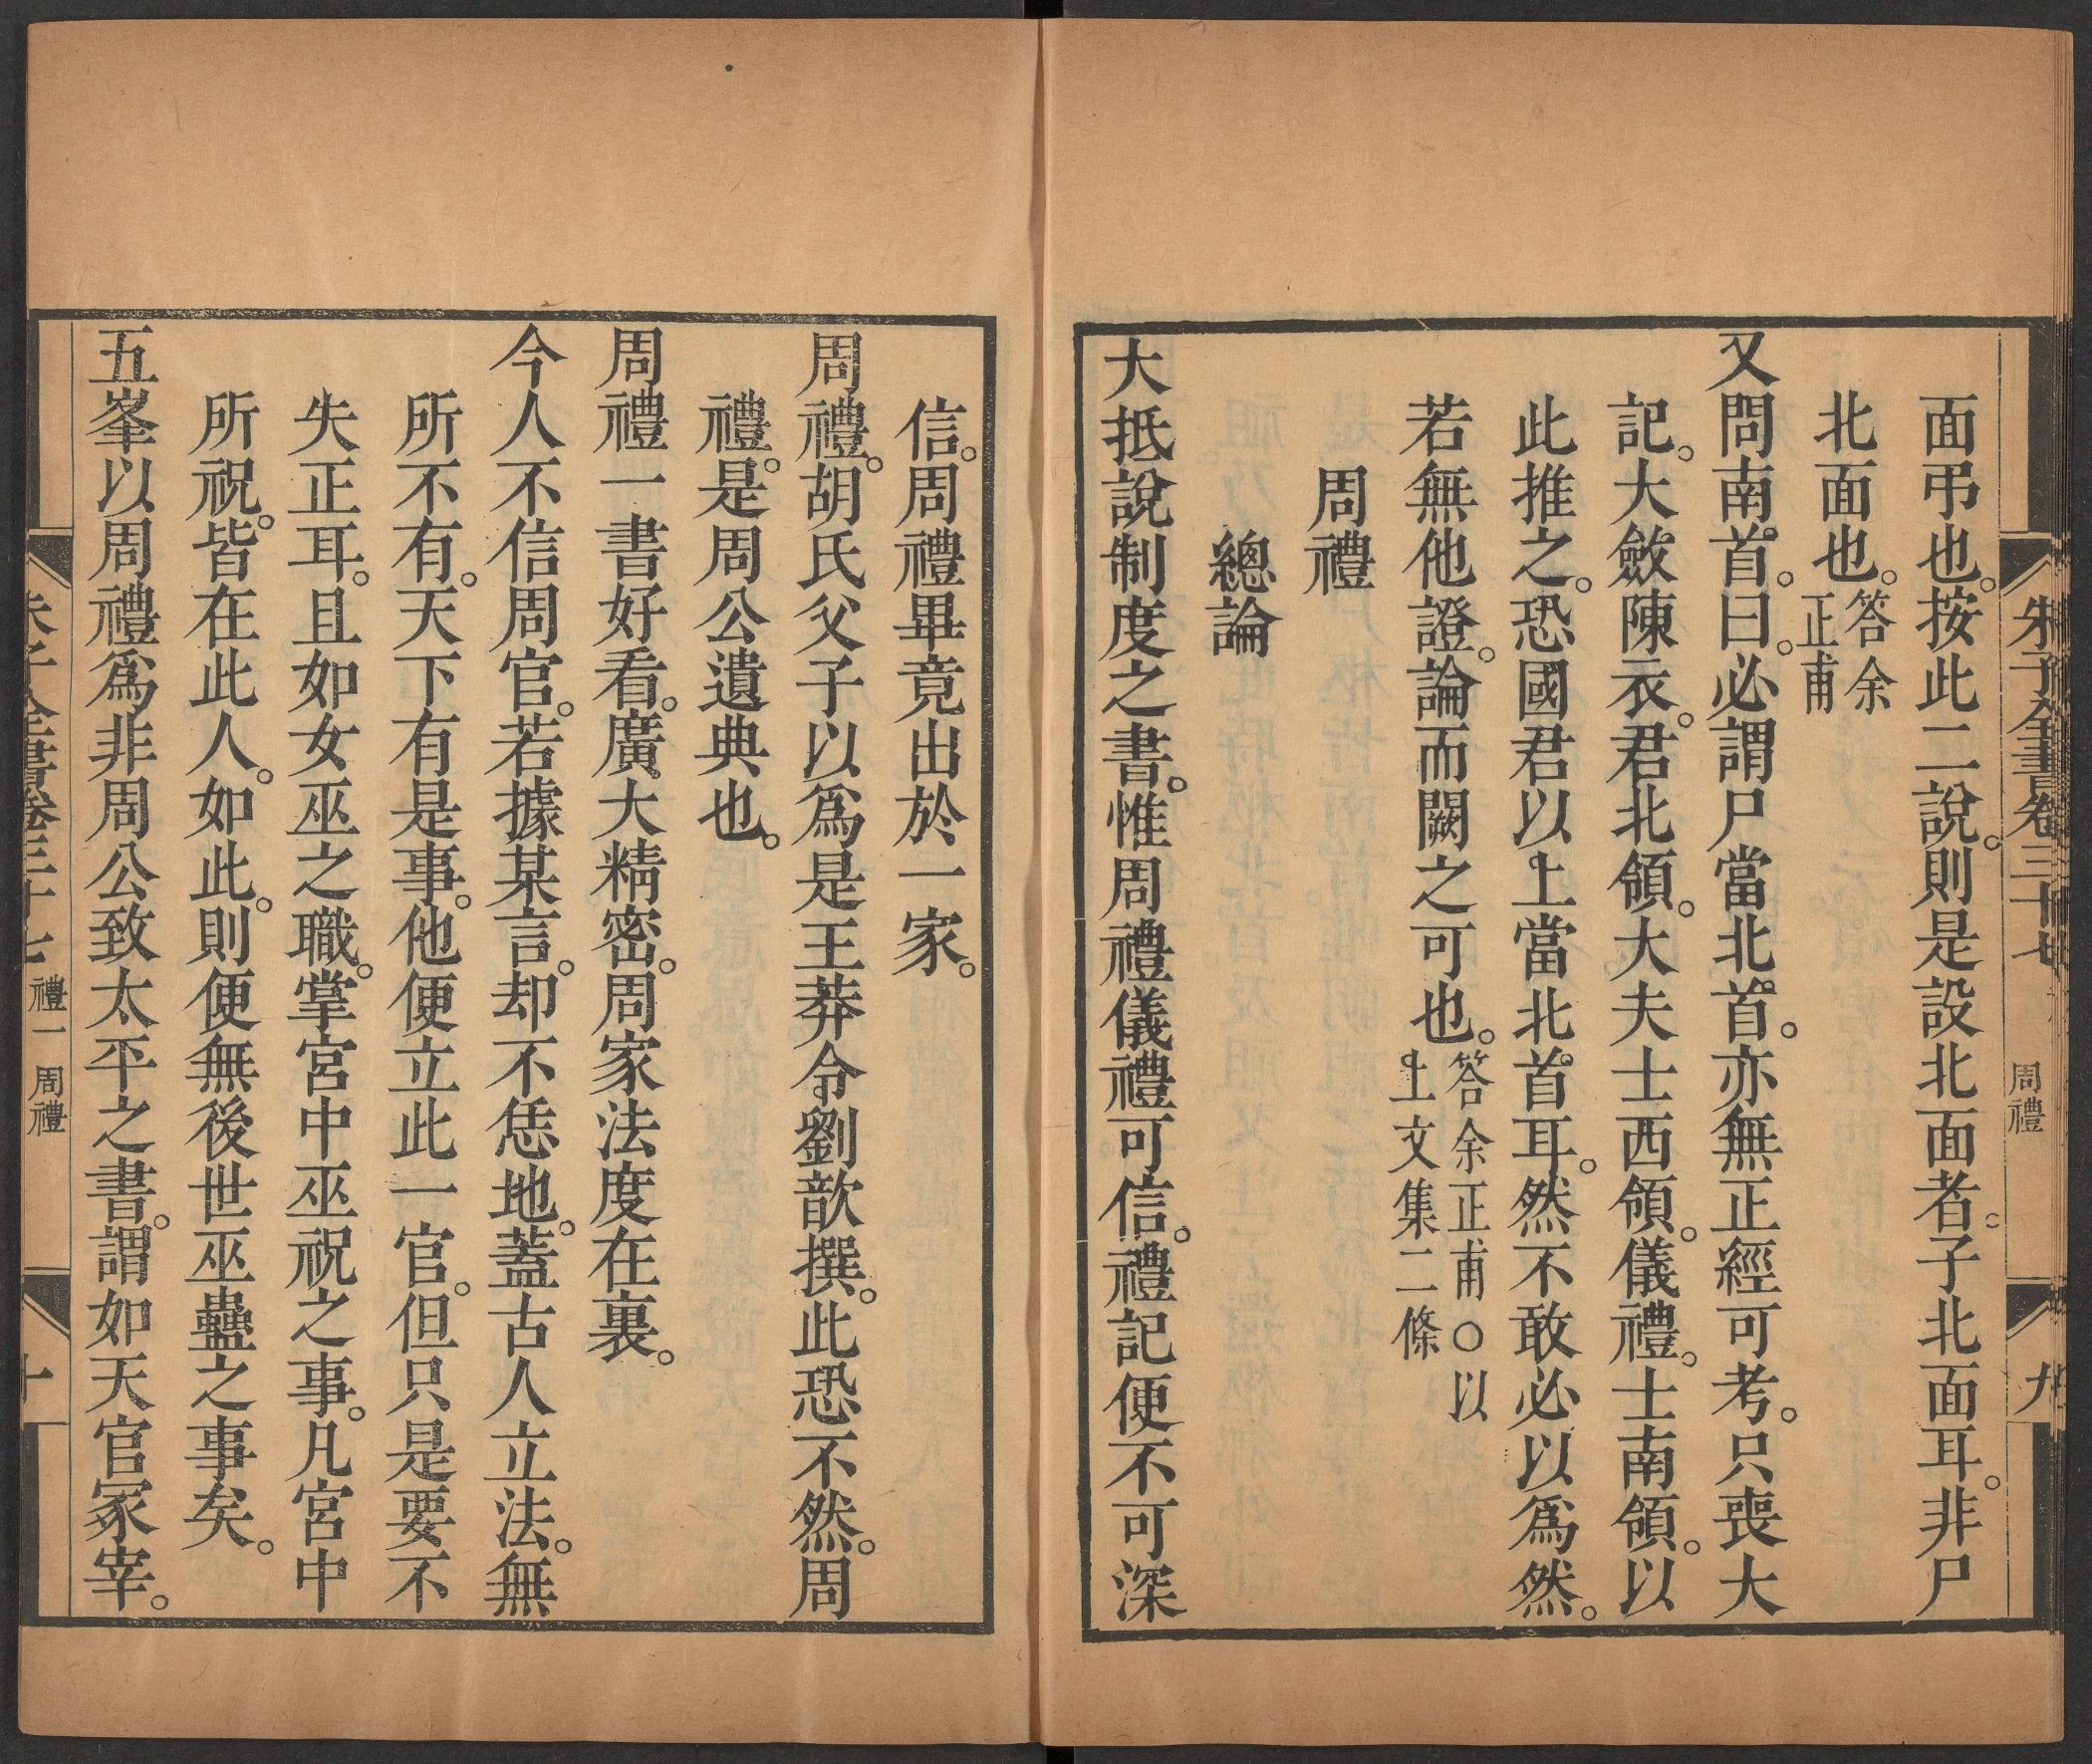 朱子全書卷三十七
周禮
九
面弔也。按此二說。則是設北面者。子北面耳。非尸
北面也。答余正甫
又問南首。曰。必謂尸當北首。亦無正經可考。只喪大
記。大斂陳衣。君北領。大夫士西領。儀禮。士南領。以
此推之。恐國君以上當北首耳。然不敢必以爲然。
若無他證。論而闕之可也。答余正甫○以
上文集二條
周禮
總論
大抵說制度之書。惟周禮儀禮可信。禮記便不可深
信。周禮畢竟出於一家。
周禮。胡氏父子以爲是王莽令劉歆撰。此恐不然。周
禮。是周公遺典也。
周禮一書好看。廣大精密。周家法度在裏。
今人不信周官。若據某言。却不恁地。蓋古人立法。無
所不有。天下有是事。他便立此一官。但只是要不
失正耳。且如女巫之職。掌宮中巫祝之事。凡宮中
所祝。皆在此人。如此。則便無後世巫蠱之事矣。
五峯以周禮爲非周公致太平之書。謂如天官冢宰。
朱子全書卷三十七
禮一 周禮
十